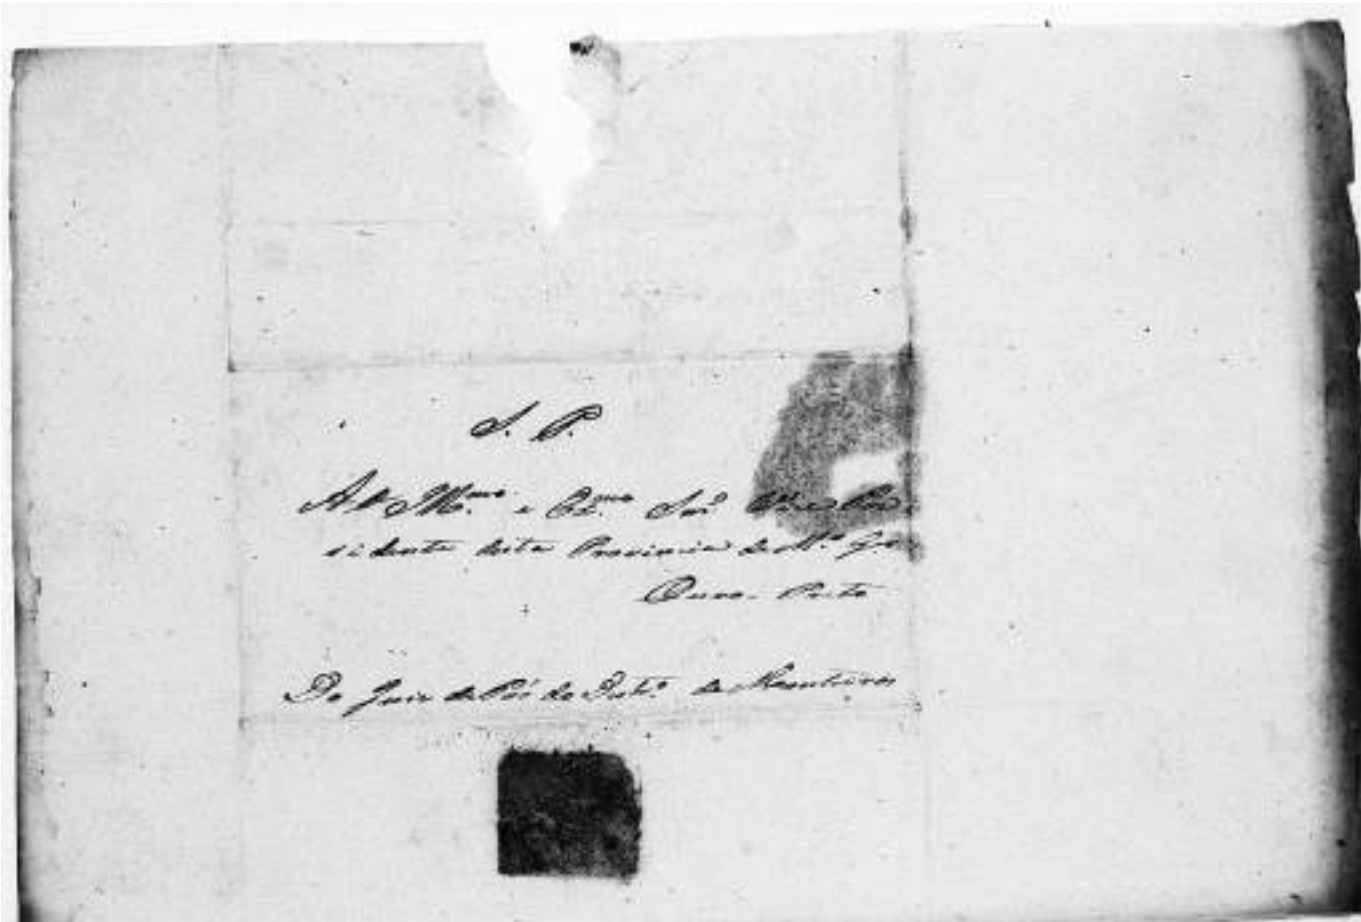 S. P.
Ao Ill.mo e Ex.mo Snr. Vice Pre-
sidente desta Provincia de M.s Ge.
Ouro-Preto
Do Juiz de Paz do Dist.o de